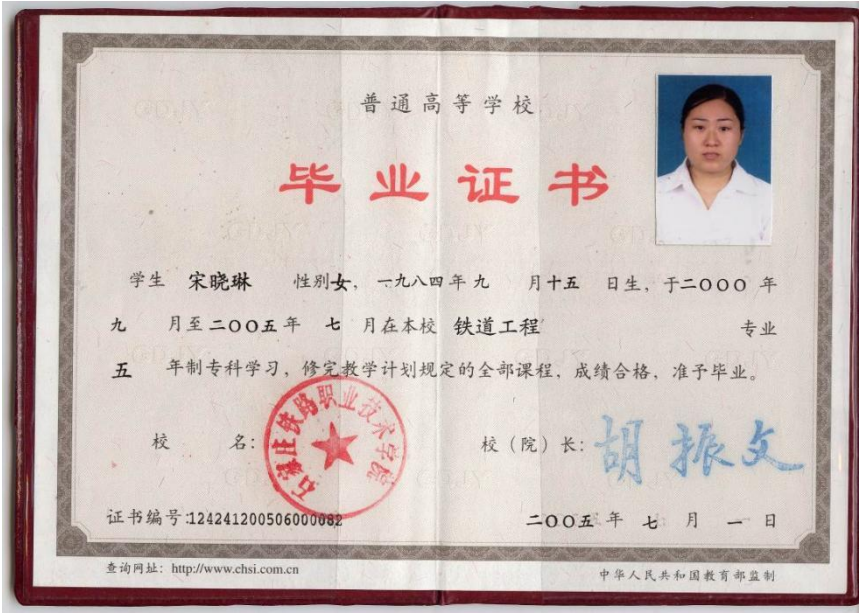 普通高等学校
毕业证书
学生 宋晓琳 性别女，一九八四年九 月十五 日生，于二〇〇〇 年
九 月至二〇〇五年 七 月在本校 铁道工程 专业
五 年制专科学习，修完教学计划规定的全部课程，成绩合格，准予毕业。
校 名：
石家庄铁路职业技术学院
校（院）长：胡振文
证书编号:124241200506000082
二〇〇五年 七 月 一 日
查询网址：http://www.chsi.com.cn
中华人民共和国教育部监制